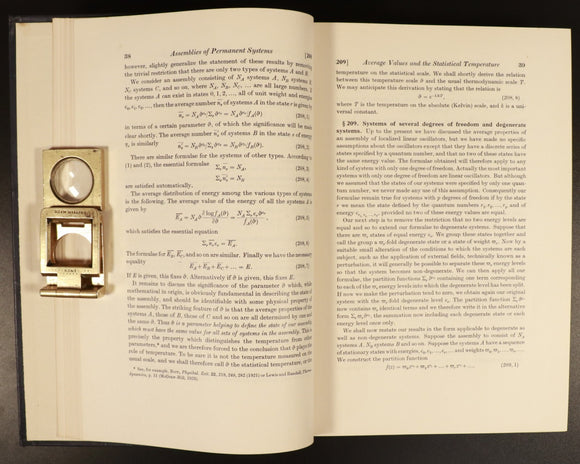 38 Assemblies of Permanent Systems [208
however, slightly generalize the statement of these results by removing
the trivial restriction that there are only two types of systems A and B.
We consider an assembly consisting of N_A systems A, N_B systems B,
N_C systems C, and so on, where N_A, N_B, N_C, ... are all large numbers. If
the systems A can exist in states 0, 1, 2, ..., all of unit weight and energies
ε₀, ε₁, ε₂, ..., then the average number of systems A in the state r is given by
(208, 1)
in terms of a certain parameter ϑ, of which the significance will be made
clear shortly. The average number of systems B in the state r of energy
η_r is similarly
(208, 2)
There are similar formulae for the systems of other types. According to
(1) and (2), the essential formulae
(208, 3)
(208, 4)
are satisfied automatically.
The average distribution of energy among the various types of systems
is the following. The average value of the energy of all the systems A is
given by
(208, 5)
which satisfies the essential equation
(208, 6)
The formulae for E_B, E_C, and so on are similar. Finally we have the necessary
equality
E_A + E_B + E_C + ... = E. (208, 7)
If E is given, this fixes ϑ. Alternatively if ϑ is given, this fixes E.
It remains to discuss the significance of the parameter ϑ which, while
mathematical in origin, is obviously fundamental in describing the state of
the assembly, and should be identifiable with some physical property of
the assembly. The striking feature of ϑ is that the average properties of the
systems A, those of B, those of C and so on are all determined by one and
the same ϑ. Thus ϑ is a parameter helping to define the state of our assembly
which must have the same value for all sets of systems in the assembly. This is
precisely the property which distinguishes the temperature from other
parameters,* and we are therefore forced to the conclusion that ϑ plays the
role of temperature. To be sure it is not the temperature measured on the
usual scale, and we shall therefore call ϑ the statistical temperature, or the
* See, for example, Born, Physikal. Zeit. 22, 218, 249, 282 (1921) or Lewis and Randall, Thermo-
dynamics, p. 11 (McGraw-Hill, 1923).
209] Average Values and the Statistical Temperature 39
temperature on the statistical scale. We shall shortly derive the relation
between this temperature scale ϑ and the usual thermodynamic scale T.
We may anticipate this derivation by stating that the relation is
(208, 8)
where T is the temperature on the absolute (Kelvin) scale, and k is a uni-
versal constant.
§ 209. Systems of several degrees of freedom and degenerate
systems. Up to the present we have discussed the average properties of
an assembly of localized linear oscillators, but we have made no specific
assumptions about the oscillators except that they have a discrete series of
states specified by a quantum number, and that no two of these states have
the same energy value. The formulae obtained will therefore apply to any
kind of system with only one degree of freedom. Actually the most important
systems with only one degree of freedom are linear oscillators. But although
we assumed that the states of our systems were specified by only one quan-
tum number, we never made any use of this assumption. Consequently our
formulae remain true for systems with p degrees of freedom if by the state
r we mean the state defined by the quantum numbers
energy provided no two of these energy values are equal.
Our next step is to remove the restriction that no two energy levels are
equal and so to extend our formulae to degenerate systems. Suppose that
there are ϖ_r states of equal energy ε_r. We group these states together and
call the group a ϖ_r-fold degenerate state or a state of weight ϖ_r. Now by a
suitable small alteration of the conditions to which the systems are each
subject, such as the application of external fields, technically known as a
perturbation, it will generally be possible to separate these ϖ_r energy levels
so that the system becomes non-degenerate. We can then apply all our
formulae, the partition functions containing one term corresponding
to each of the ϖ_r energy levels into which the degenerate level has been split.
If now we make the perturbation tend to zero, we obtain again our original
system with the ϖ_r-fold degenerate level ε_r. The partition function
now contains ϖ_r identical terms and we therefore write it in the alternative
form the summation now including each degenerate state or each
energy level once only.
We shall now restate our results in the form applicable to degenerate as
well as non-degenerate systems. Suppose the assembly to consist of N_A
systems A, N_B systems B and so on. Suppose the systems A have a sequence
of stationary states with energies, ε₀, ε₁, ... ε_r, ... and weights ϖ₀, ϖ₁, ... ϖ_r, ...
We construct the partition function
(209, 1)